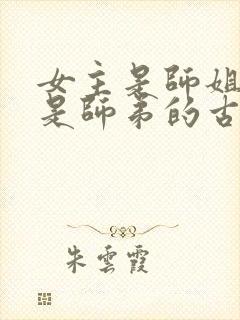 女主是師姐
是師弟的古
朱雲霞